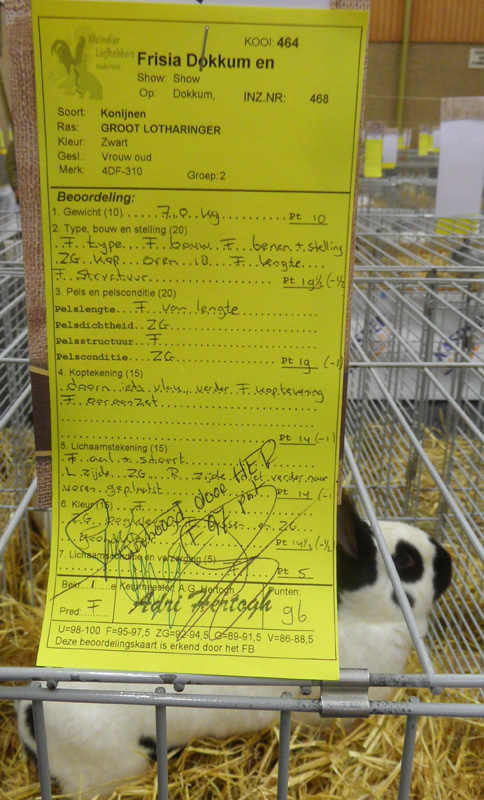 Kleindier
Liefhebbers
Nederland
KOOI: 464
Frisia Dokkum en
Show: Show
Op: Dokkum, INZ.NR: 468
Soort: Konijnen
Ras: GROOT LOTHARINGER
Kleur: Zwart
Gesl.: Vrouw oud
Merk: 4DF-310 Groep: 2
Beoordeling:
1. Gewicht (10) ...... 7,0 kg ...... Pt 10
2. Type, bouw en stelling (20)
F type, F bouw F benen + stelling
ZG kop oren 18 F lengte
F structuur Pt 19½ (-½)
3. Pels en pelsconditie (20)
Pelslengte. F van lengte
Pelsdichtheid. ZG
Pelsstructuur. F
Pelsconditie. ZG Pt 19 (-1)
4. Koptekening (15)
doorn iets vlou, verder F koptekening
F ooraanzet
Pt 14 (-1)
5. Lichaamstekening (15)
F aal + staart
L zijde ZG R zijde iets verder naar
voren geplaatst Pt 14 (-1
6. Kleur (15)
ZG en ZG
Pt 14½ (-½)
door HED
F 97 pnt
7. Lichaamsconditie en verzorging (5)
Pt 5
Keurmeester: A.G. Hertogh Punten:
Pred: F Adri Hertogh 96
U=98-100 F=95-97,5 ZG=92-94,5 G=89-91,5 V=86-88,5
Deze beoordelingskaart is erkend door het FB